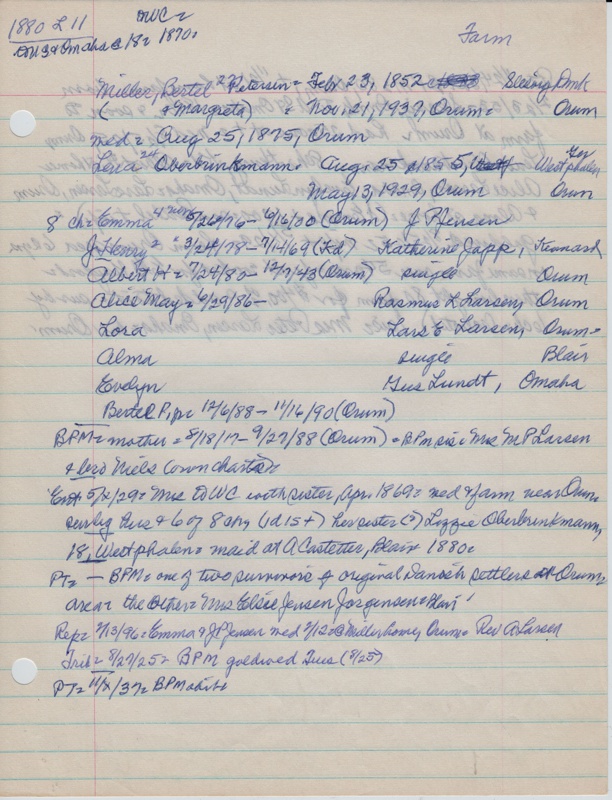 1880 L 11 toWC =
to US & Omaha @ 18 = 1870 =
Farm
Miller, Bertel 27 Petersen = Feb 23, 1852 Slesvig Dmk
( & Margreta) = Nov. 21, 1937, Orum = Orum
med = Aug 25, 1875, Orum
Lena 24 Oberbrinkmann = Aug. 25, 1855, Westphalen Ger
May 13, 1929, Orum Orum
8 ch = Emma 4 5/26/76 - 6/16/00 (Orum) J P Jensen
J. Henry 2 = 3/24/78 - 7/14/69 (Kd) Katherine Japp, Kennard
Albert H = 7/24/80 - 12/7/43 (Orum) single Orum
Alice May = 6/29/86 - Rasmus L Larsen, Orum
Lora Lars E Larsen, Orum =
Alma single Blair
Evelyn Gus Lundt, Omaha
Bertel P, jr 12/6/88 - 11/16/90 (Orum)
BPM = mother = 8/18/17 - 9/27/88 (Orum) = BPM sis = Mrs M P Larsen
& bro Niels (own charts) =
Ent 5/x/29 = Mrs toWC with sister, Apr. 1869 = med & farm near Orum =
survby hus & 6 of 8 chn (1d 1st) her sister (?) Lizzie Oberbrinkmann,
18, Westphalen = maid at A Castetter, Blair 1880 =
PT = — BPM = one of two survivors of original Danish settlers at Orum
area = the other = Mrs Elsie Jensen Jorgensen =
Rep = 3/13/96 = Emma & J P Jensen med @ Miller home, Orum = Rev A Larsen
Trib = 8/27/25 = BPM goldwed Tues (8/25)
PT = 11/x/37 = BPM obit =